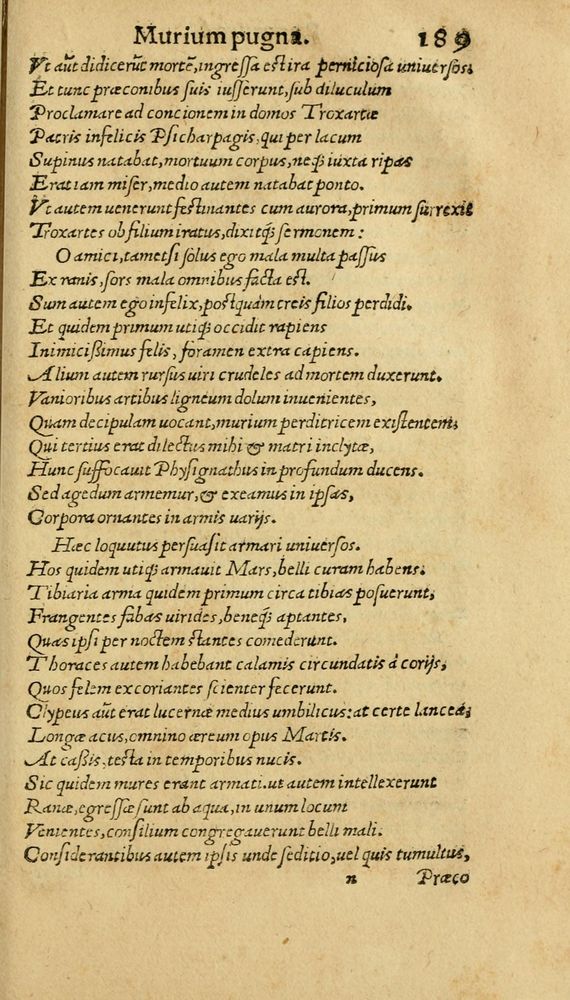 Murium pugna. 189
Vt aũt didicerũt mortẽ, ingressa est ira perniciosa uniuersos.
Et tunc præconibus suis iusserunt, sub diluculum
Proclamare ad concionem in domos Troxartæ
Patris infelicis Psicharpagis, qui per lacum
Supinus natabat, mortuum corpus, neq; iuxta ripas
Erat iam miser, medio autem natabat ponto.
Vt autem uenerunt festinantes cum aurora, primum surrexit
Troxartes ob filium iratus, dixitq; sermonem:
O amici, tametsi solus ego mala multa passus
Ex ranis, sors mala omnibus facta est.
Sum autem ego infelix, postquàm treis filios perdidi.
Et quidem primum utiq; occidit rapiens
Inimicissimus felis, foramen extra capiens.
Alium autem rursus uiri crudeles ad mortem duxerunt.
Vanioribus artibus ligneum dolum inuenientes,
Quam decipulam uocant, murium perditricem existentem,
Qui tertius erat dilectus mihi & matri inclytæ,
Hunc suffocauit Physignathus in profundum ducens.
Sed agedum armemur, & exeamus in ipsas,
Corpora ornantes in armis uarijs.
Hæc loquutus persuasit armari uniuersos.
Hos quidem utiq; armauit Mars, belli curam habens.
Tibiaria arma quidem primum circa tibias posuerunt,
Frangentes fabas uirides, beneq; aptantes,
Quas ipsi per noctem stantes comederunt.
Thoraces autem habebant calamis circundatis à corijs,
Quos felem excoriantes scienter fecerunt.
Clypeus aũt erat lucernæ medius umbilicus: at certe lancea,
Longæ acus, omnino æreum opus Martis.
At cassis, testa in temporibus nucis.
Sic quidem mures erant armati. ut autem intellexerunt
Ranæ, egressæ sunt ab aqua, in unum locum
Venientes, consilium congregauerunt belli mali.
Considerantibus autem ipsis unde seditio, uel quis tumultus,
n Præco